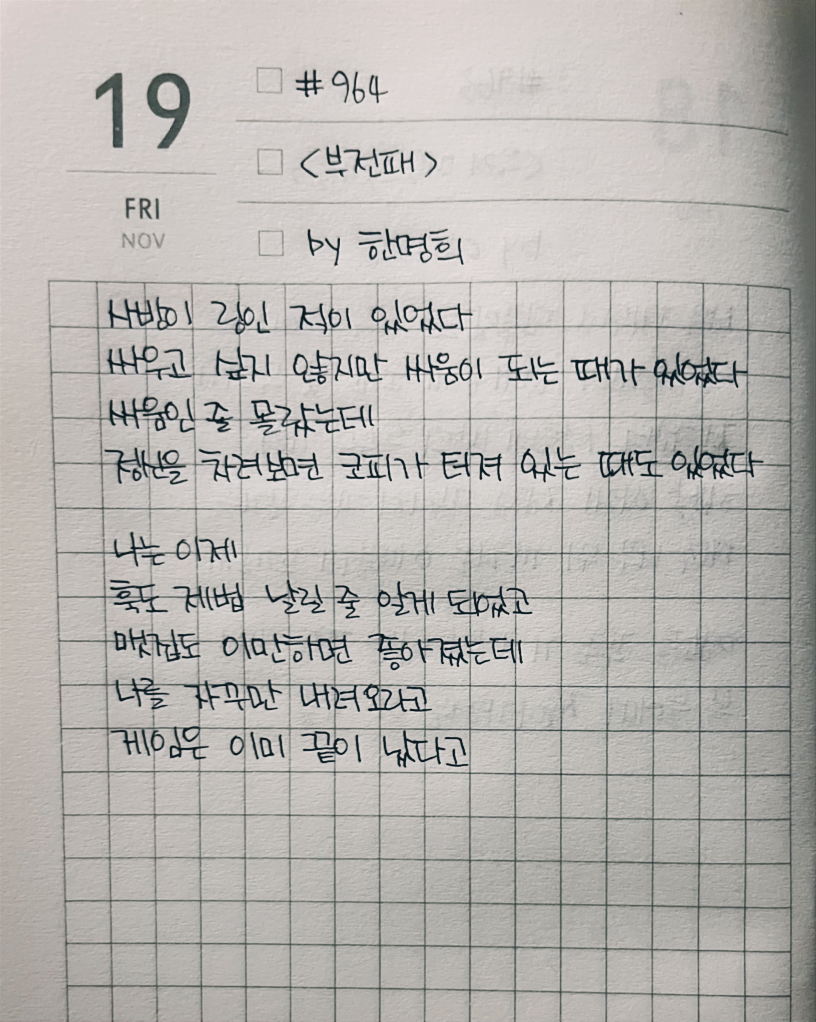 19
FRI
NOV
#964
<부전패>
by 한명희
사방이 링인 적이 있었다
싸우고 싶지 않지만 싸움이 되는 때가 있었다
싸움인 줄 몰랐는데
정신을 차려보면 코피가 터져 있는 때도 있었다
나는 이제
훅도 제법 날릴 줄 알게 되었고
맷집도 이만하면 좋아졌는데
나를 자꾸만 내려오라고
게임은 이미 끝이 났다고